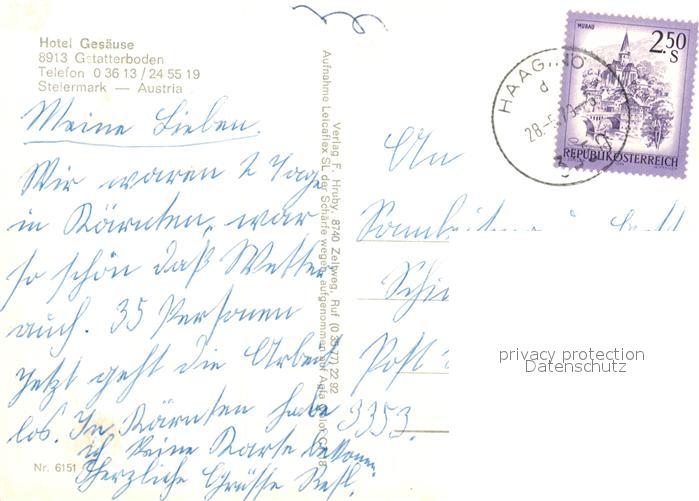 Hotel Gesäuse
8913 Gstatterboden
Telefon 0 36 13 / 24 55 19
Steiermark — Austria
Meine Lieben.
Wir waren 2 Tage
in Kärnten, war
so schön daß Wetter
auch. 35 Personen
jetzt geht die Arbeit
los. In Kärnten habe
ich keine Karte bekommen
Herzliche Grüsse Resl.
Nr. 6151
Verlag F. Hruby, 8740 Zeltweg, Ruf (0 35 77) 22 92
Aufnahme Leicaflex SL der Schärfe wegen aufgenommen auf Agfa
An
Post
3353
MURAU
2.50
S
REPUBLIK ÖSTERREICH
HAAG, NÖ
d
28.-5.
privacy protection
Datenschutz